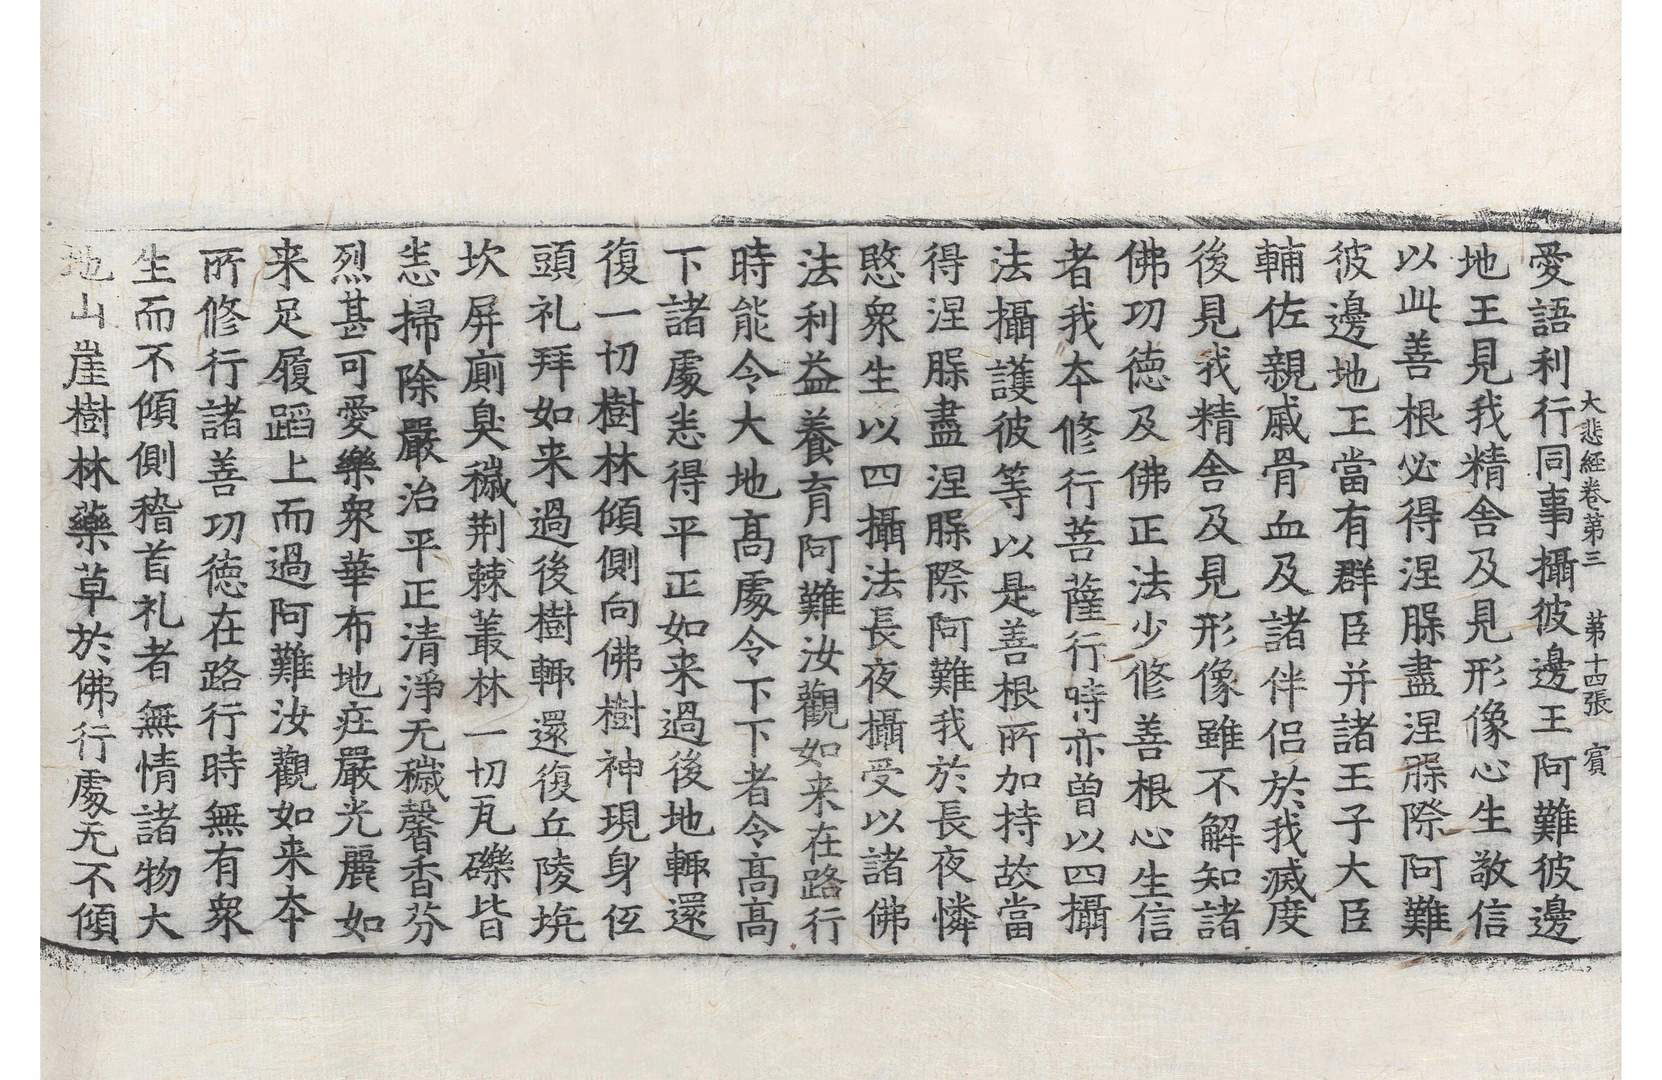 大悲經卷第三 第十四張 賓
愛語利行同事攝彼邊王阿難彼邊
地王見我精舍及見形像心生敬信
以此善根必得涅槃盡涅槃際阿難
彼邊地王當有群臣并諸王子大臣
輔佐親戚骨血及諸伴侶於我滅度
後見我精舍及見形像雖不解知諸
佛功德及佛正法少修善根心生信
者我本修行菩薩行時亦曾以四攝
法攝護彼等以是善根所加持故當
得涅槃盡涅槃際阿難我於長夜憐
愍衆生以四攝法長夜攝受以諸佛
法利益養育阿難汝觀如来在路行
時能令大地高處令下下者令高高
下諸處悉得平正如来過後地輙還
復一切樹林傾側向佛樹神現身低
頭礼拜如来過後樹輙還復丘陵坑
坎屏廁臭穢荆棘叢林一切瓦礫皆
悉掃除嚴治平正清淨无穢馨香芬
烈甚可愛樂衆華布地庄嚴光麗如
来足履蹈上而過阿難汝觀如来本
所修行諸善功徳在路行時無有衆
生而不傾側稽首礼者無情諸物大
地山崖樹林藥草於佛行處无不傾